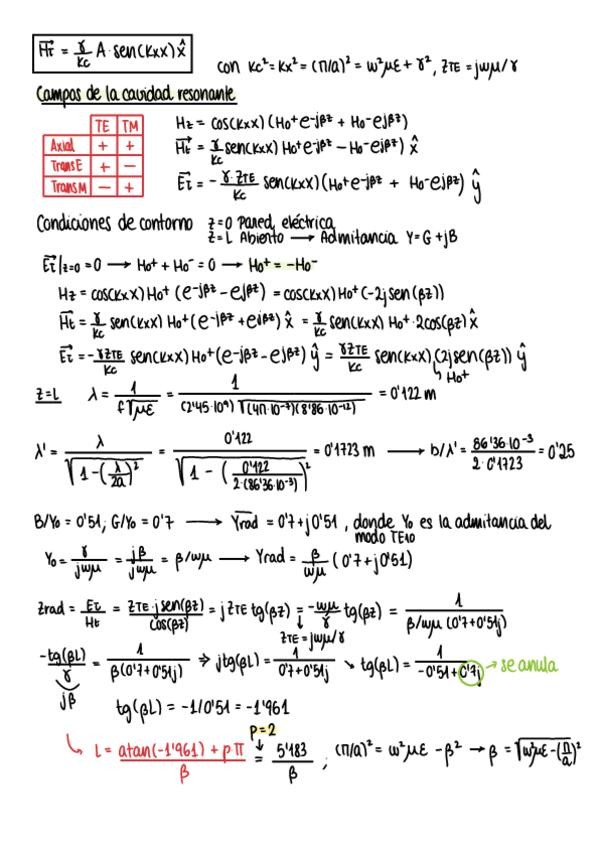 H⃗t = γ/Kc A·sen(Kxx) x̂
con Kc² = Kx² = (π/a)² = ω²με + γ², ZTE = jωμ/γ
Campos de la cavidad resonante
TE TM
Axial + +
Trans E + −
Trans M − +
Hz = cos(Kxx)(Ho⁺e^-jβz + Ho⁻e^jβz)
H⃗t = γ/Kc sen(Kxx) Ho⁺e^-jβz − Ho⁻e^jβz) x̂
E⃗t = − γ·ZTE/Kc sen(Kxx)(Ho⁺e^-jβz + Ho⁻e^jβz) ŷ
Condiciones de contorno z=0 Pared eléctrica
z=L Abierto → Admitancia Y=G+jB
E⃗t|z=0 = 0 → Ho⁺ + Ho⁻ = 0 → Ho⁺ = −Ho⁻
Hz = cos(Kxx) Ho⁺ (e^-jβz − e^jβz) = cos(Kxx) Ho⁺ (−2j sen(βz))
H⃗t = γ/Kc sen(Kxx) Ho⁺ (e^-jβz + e^jβz) x̂ = γ/Kc sen(Kxx) Ho⁺·2cos(βz) x̂
E⃗t = − γZTE/Kc sen(Kxx) Ho⁺ (e^-jβz − e^jβz) ŷ = γZTE/Kc sen(Kxx)(2j sen(βz)) ŷ
↳ Ho⁺
z=L λ = 1/(f√με) = 1/((2'45·10⁹)√((4π·10⁻⁷)(8'86·10⁻¹²))) = 0'122 m
λ' = λ/√(1−(λ/2a)²) = 0'122/√(1 − (0'122/(2·(86'36·10⁻³)))²) = 0'1723 m → b/λ' = 86'36·10⁻³/(2·0'1723) = 0'25
B/Yo = 0'51; G/Yo = 0'7 → Y̅rad = 0'7+j0'51, donde Yo es la admitancia del
modo TE10
Yo = γ/jωμ = jβ/jωμ = β/ωμ → Yrad = β/ωμ (0'7+j0'51)
Zrad = Et/Ht = ZTE·j sen(βz)/cos(βz) = j ZTE tg(βz) = −ωμ/γ tg(βz) = 1/(β/ωμ (0'7+0'51j))
ZTE = jωμ/γ
−tg(βL)/γ = 1/(β(0'7+0'51j)) ⇒ jtg(βL) = 1/(0'7+0'51j) ↘ tg(βL) = 1/(−0'51+0'7j) → se anula
jβ
tg(βL) = −1/0'51 = −1'961
p=2
↳ L = (atan(−1'961) + pπ)/β = 5'183/β ; (π/a)² = ω²με − β² → β = √(ω²με−(π/a)²)